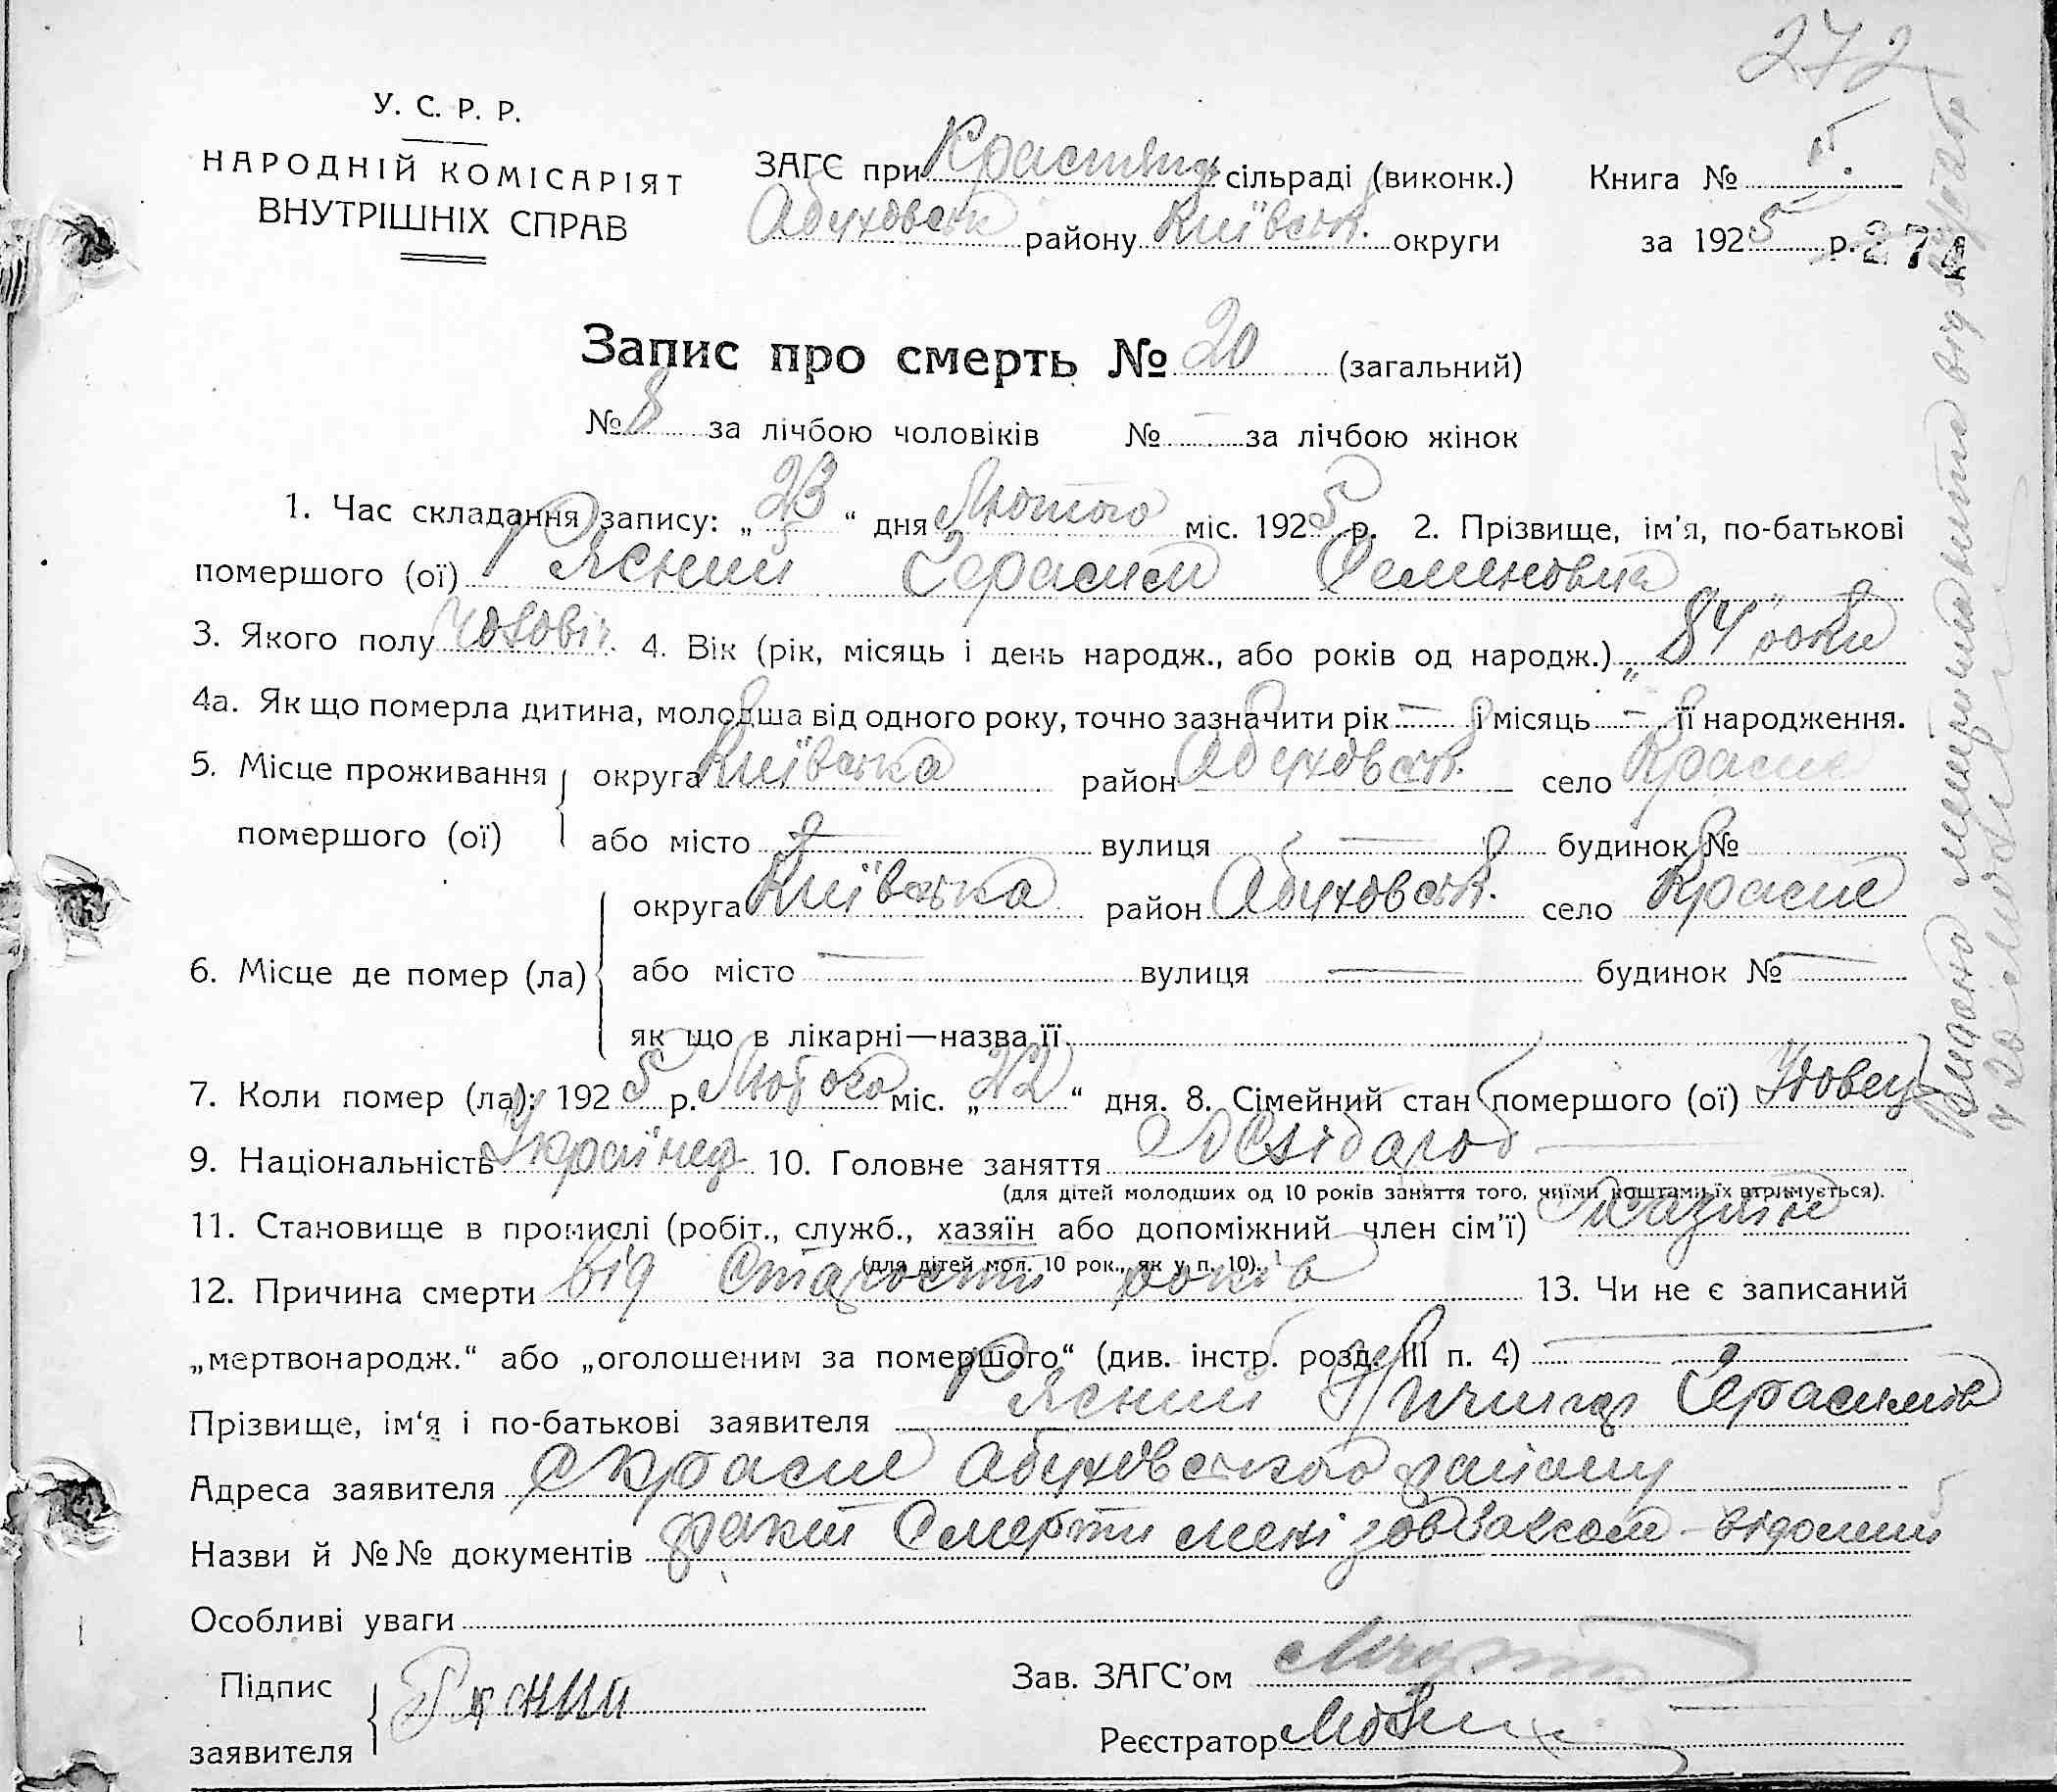 272
У. С. Р. Р.
НАРОДНІЙ КОМІСАРІЯТ
ВНУТРІШНІХ СПРАВ
ЗАГС при Краснян. сільраді (виконк.) Книга № 5.
Абуховськ району Київськ. округи за 1925 р. 274
Запис про смерть № 20 (загальний)
№ 8 за лічбою чоловіків № — за лічбою жінок
1. Час складання запису: „23“ дня Лютого міс. 1925 р. 2. Прізвище, ім'я, по-батькові
помершого (ої) Рясний Герасим Семенович
3. Якого полу чоловіч. 4. Вік (рік, місяць і день народж., або років од народж.) „84" роки
4а. Як що померла дитина, молодша від одного року, точно зазначити рік — і місяць — її народження.
5. Місце проживання округа Київська район Абуховськ. село Красне
помершого (ої) або місто — вулиця — будинок №
округа Київська район Абуховськ. село Красне
6. Місце де помер (ла) або місто — вулиця — будинок № —
як що в лікарні—назва її
7. Коли помер (ла): 1925 р. Лютого міс. „22“ дня. 8. Сімейний стан помершого (ої) Удовец
9. Національність Українец 10. Головне заняття Хлібароб
(для дітей молодших од 10 років заняття того, чиїми коштами їх втримується).
11. Становище в промислі (робіт., служб., хазяїн або допоміжний член сім'ї) Хазяїн
(для дітей мол. 10 рок., як у п. 10).
12. Причина смерти від Старости років 13. Чи не є записаний
„мертвонародж.“ або „оголошеним за помершого“ (див. інстр. розд. III п. 4) —
Прізвище, ім'я і по-батькові заявителя Рясний Герасимів
Адреса заявителя с Красне Абуховського району
Назви й №№ документів факт Смерти мені відомий
Особливі уваги
Підпис Рясний Зав. ЗАГС'ом
заявителя Реєстратор
Видано